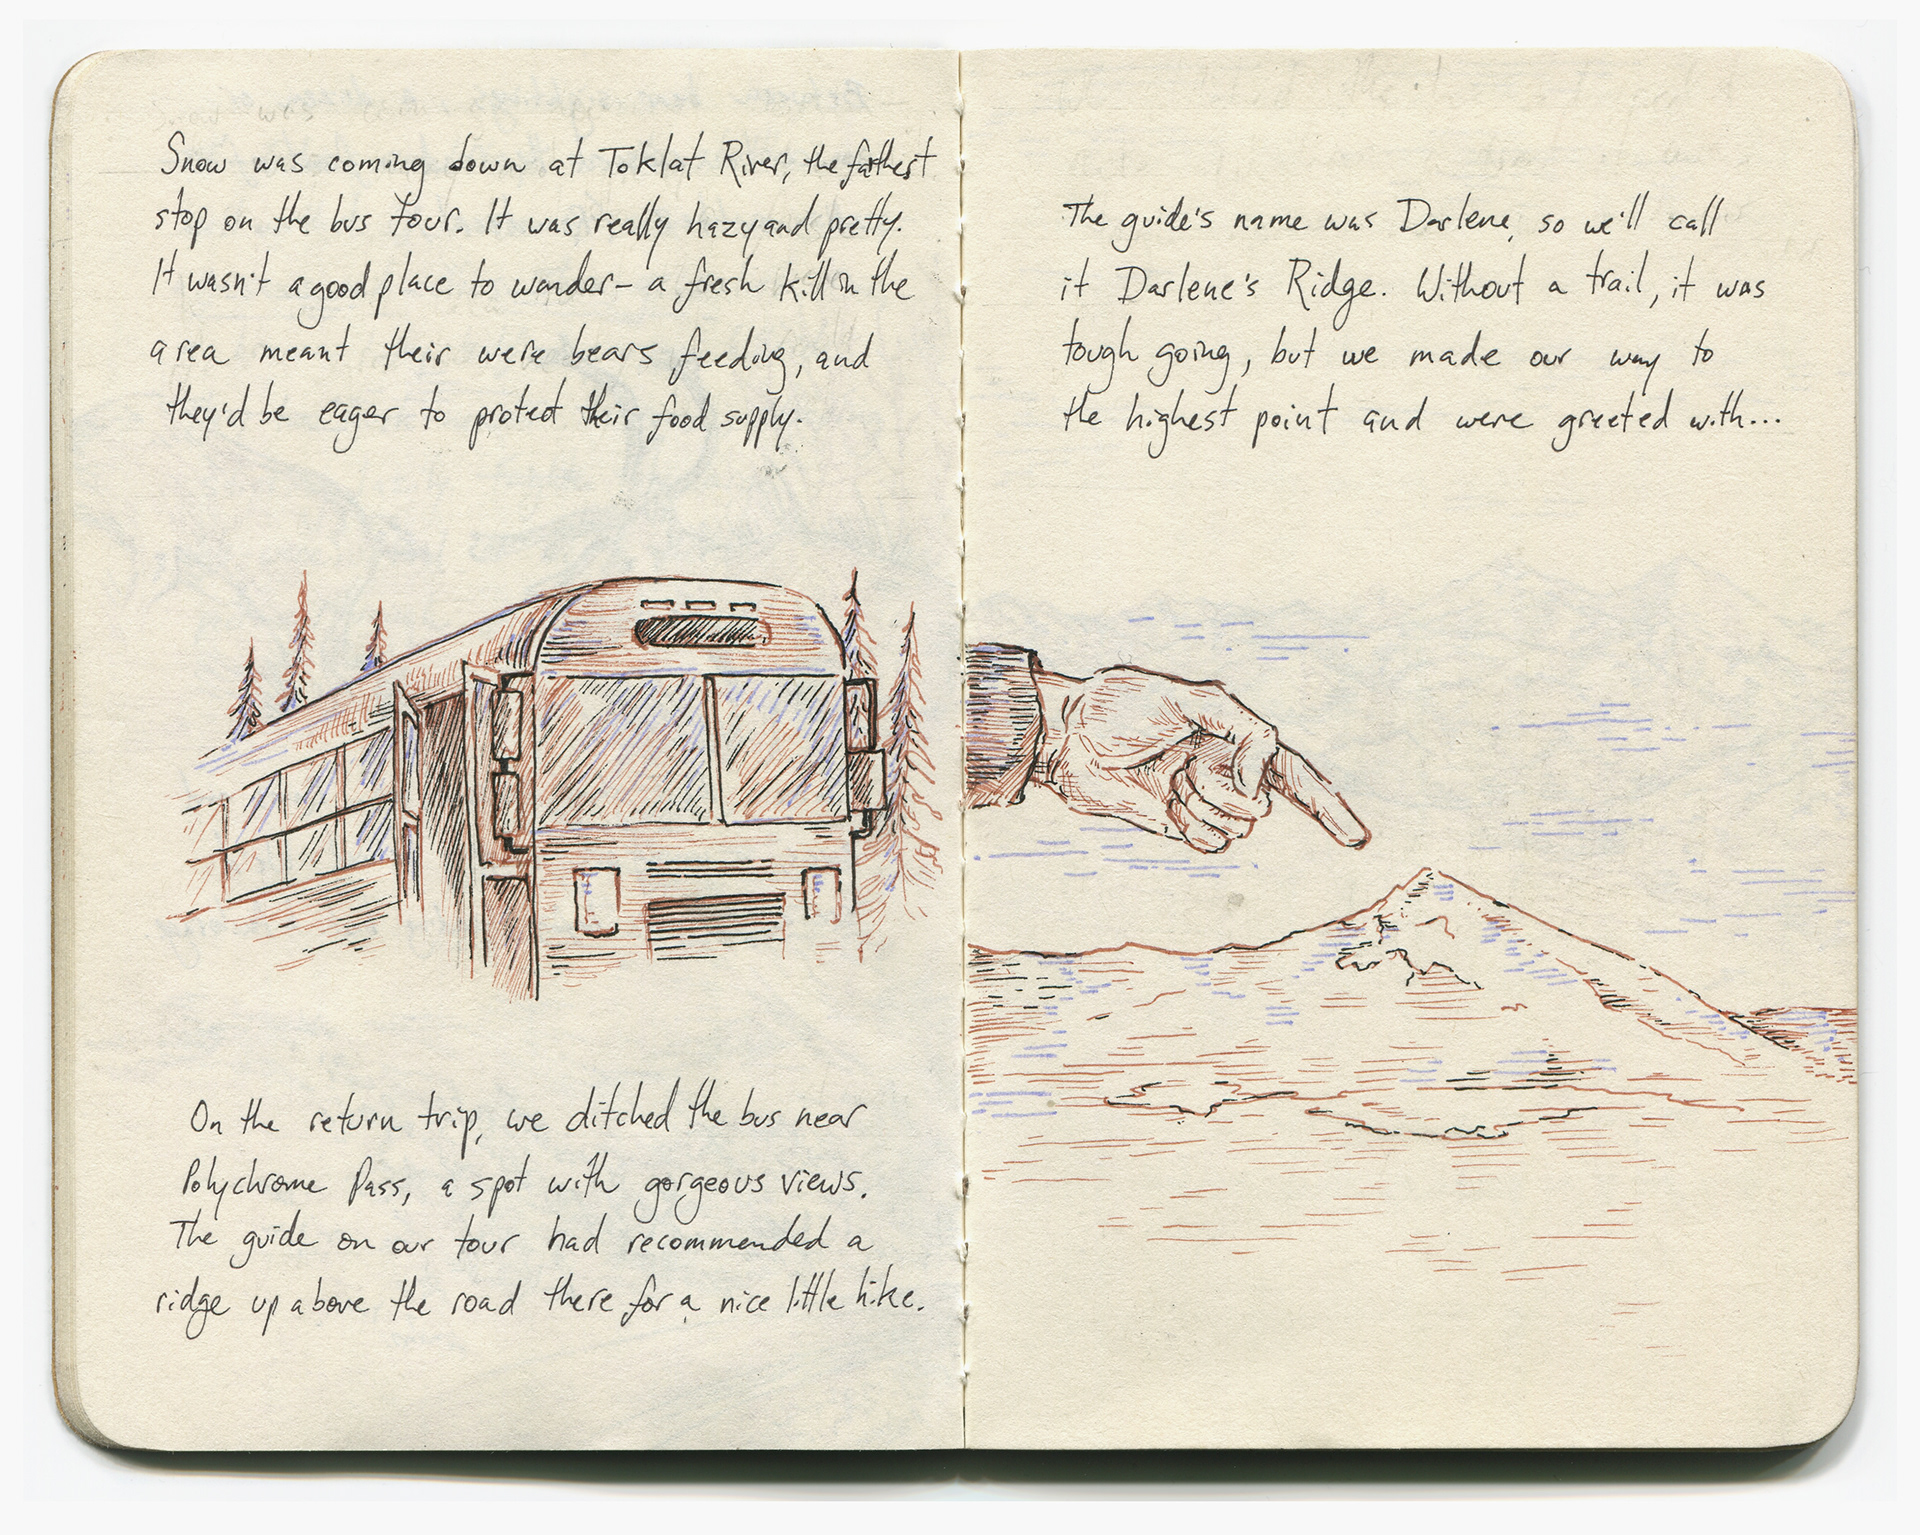 Snow was coming down at Toklat River, the farthest
stop on the bus tour. It was really hazy and pretty.
It wasn't a good place to wander- a fresh kill in the
area meant their were bears feeding, and
they'd be eager to protect their food supply.
On the return trip, we ditched the bus near
Polychrome Pass, a spot with gorgeous views.
The guide on our tour had recommended a
ridge up above the road there for a nice little hike.
The guide's name was Darlene, so we'll call
it Darlene's Ridge. Without a trail, it was
tough going, but we made our way to
the highest point and were greeted with...